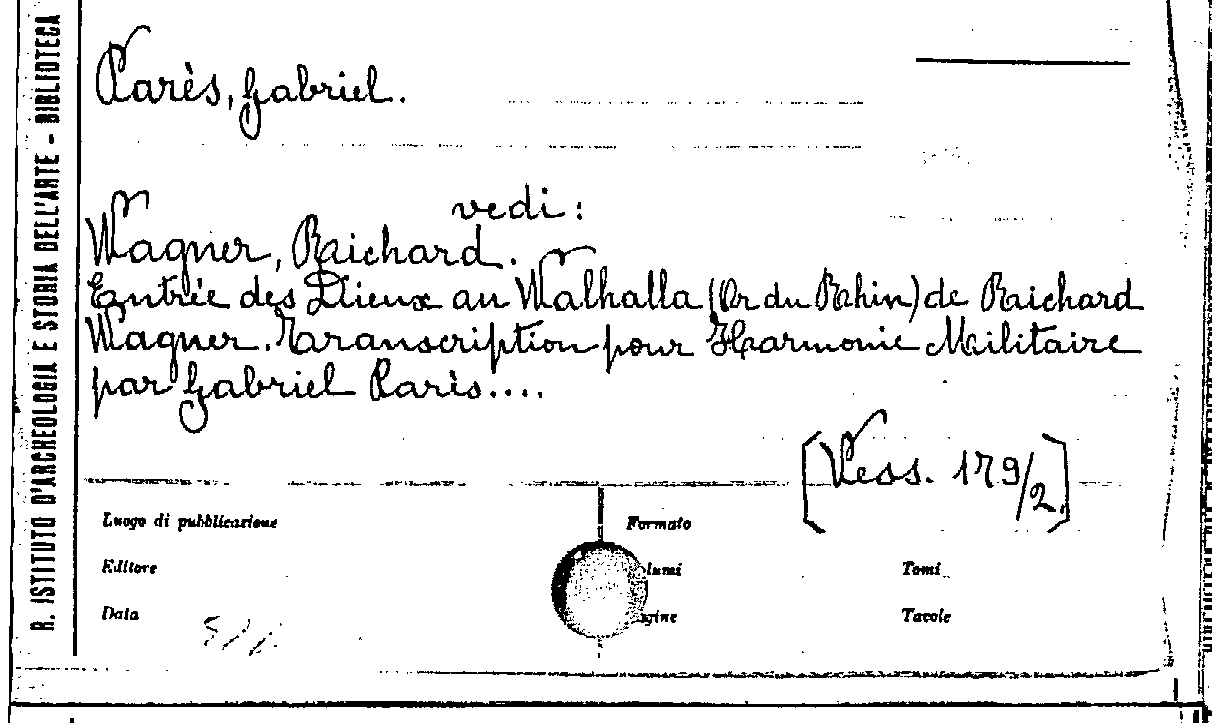 R. ISTITUTO D'ARCHEOLOGIA E STORIA DELL'ARTE - BIBLIOTECA
Parès, Gabriel.
vedi:
Wagner, Richard.
Entrée des Dieux au Walhalla (Or du Rhin) de Richard
Wagner. Transcription pour Harmonie Militaire
par Gabriel Parès....
[Vess. 179/2]
Luogo di pubblicazione
Formato
Editore
lumi
Tomi
Data
gine
Tavole